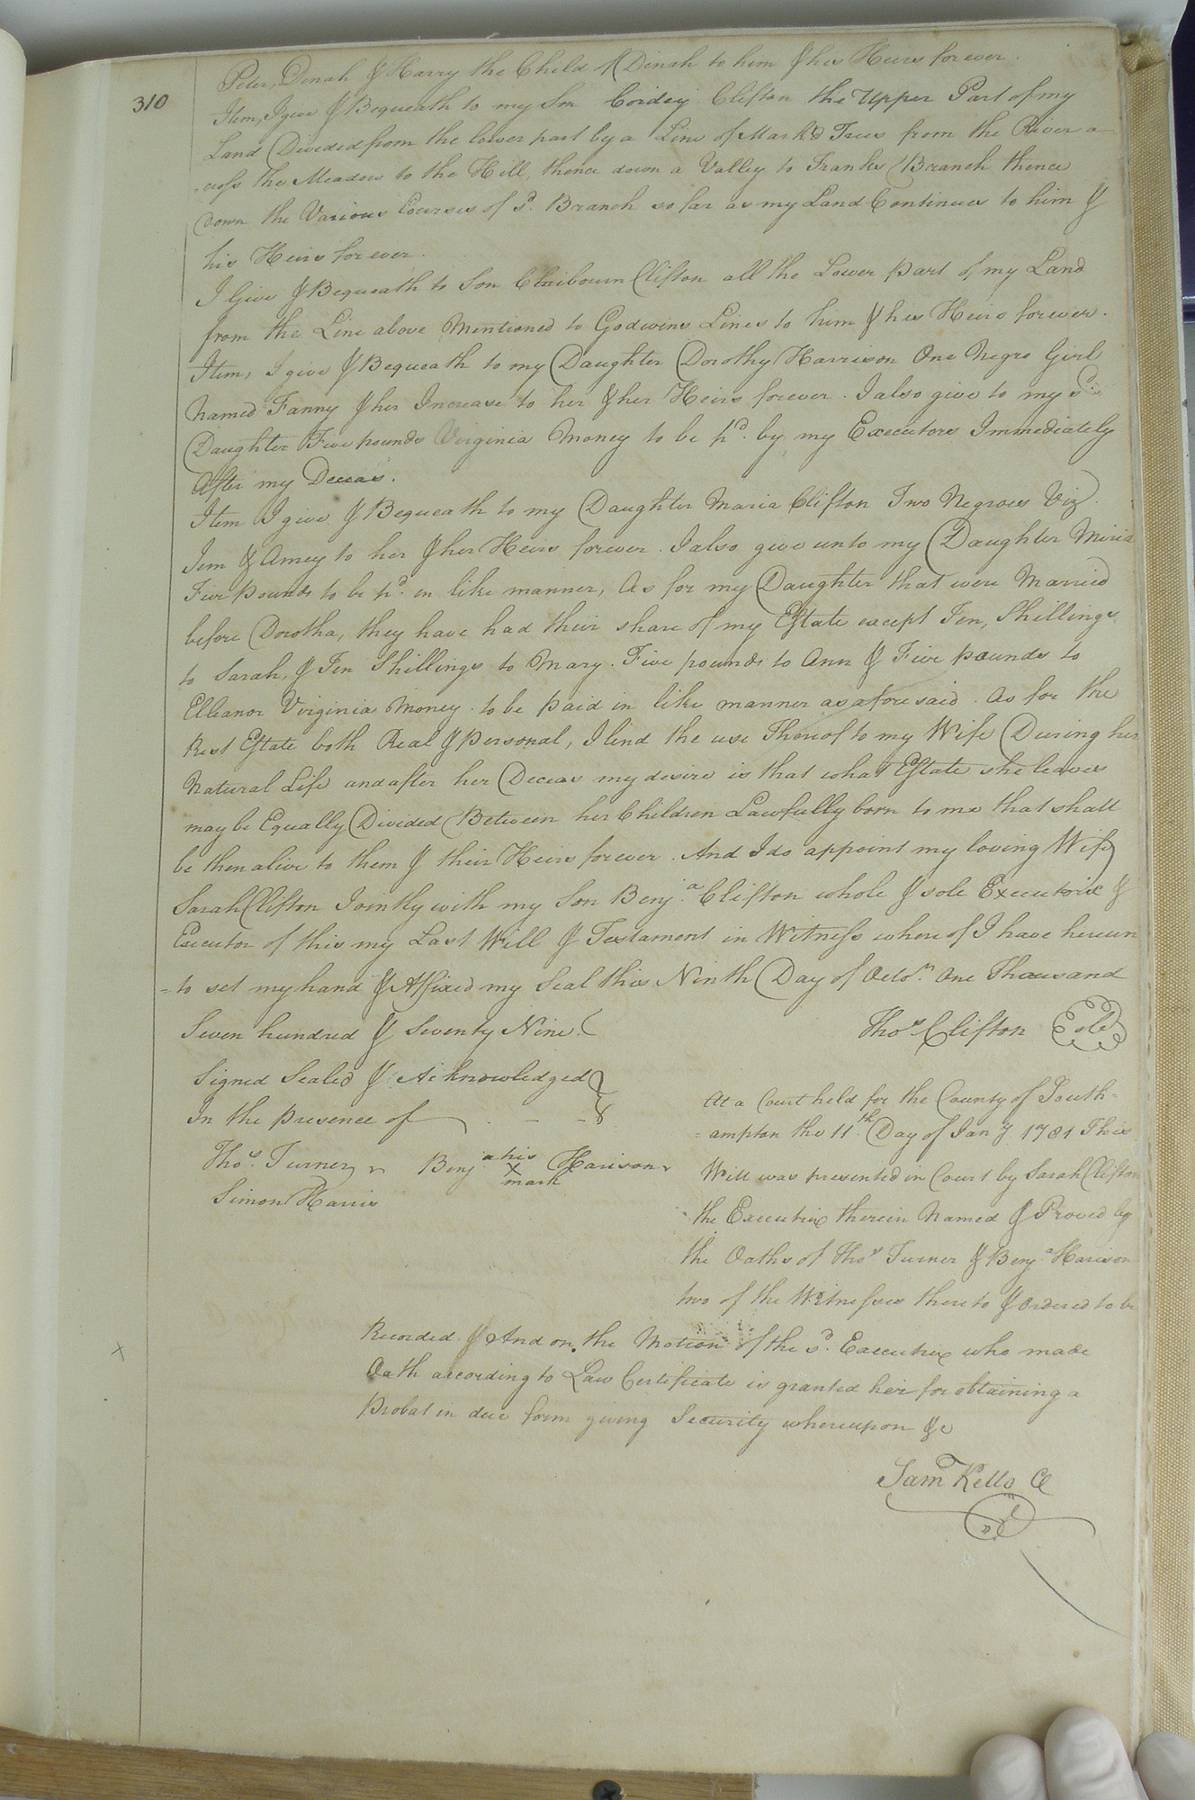 310
Peter, Dinah & Harry the Child of Dinah to him & his Heirs forever.
Item, I give & Bequeath to my Son Cordey Clifton the Upper Part of my
Land Divided from the lower part by a Line of Mark'd Trees from the River a
=cross the Meadow to the Hill, thence down a Valley to Franks Branch thence
Down the Various Courses of sd. Branch so far as my Land Continues to him &
his Heirs forever.
I Give & Bequeath to Son Claibourn Clifton all the Lower part of my Land
from the Line above Mentioned to Godwins Lines to him & his Heirs forever.
Item, I give & Bequeath to my Daughter Dorothy Harrison One Negro Girl
Named Fanny & her Increase to her & her Heirs forever. I also give to my sd.
Daughter Five pounds Virginia Money to be pd. by my Executors Immediately
After my Deceas.
Item I give & Bequeath to my Daughter Maria Clifton Two Negroes Viz.
Jem & Amey to her & her Heirs forever. I also give unto my Daughter Miria
Five pounds to be pd. in like manner, As for my Daughter that were Married
before Dorotha, they have had their share of my Estate except Ten, Shillings
to Sarah, & Ten Shillings to Mary. Five pounds to Ann & Five pounds to
Elleanor Virginia Money to be paid in like manner as aforesaid. As for the
Rest Estate both Real & personal, I lend the use Thereof to my Wife During her
Natural Life and after her Deceas my desire is that what Estate she leaves
may be Equally Divided Between her Children Lawfully born to me that shall
be then alive to them & their Heirs forever. And I do appoint my loving Wife
Sarah Clifton Jointly with my Son Benja. Clifton whole & sole Executrix &
Executor of this my Last Will & Testament in Witness whereof I have hereun
=to set my hand & Affixed my Seal this Ninth Day of Octor. One Thousand
Seven hundred & Seventy Nine.
Thos. Clifton Seal
Signed Sealed & Acknowledged
In the presence of
Thos. Turner Benja his X mark Harison
Simon Harris
At a Court held for the County of South=
=ampton the 11th Day of Jany 1781 This
Will was presented in Court by Sarah Clifton
the Executrix therein Named & Proved by
the Oaths of Thos Turner & Benja Harison
two of the Witnesses thereto & ordered to be
Recorded & And on the Motion of the sd. Executrix who made
Oath according to Law Certificate is granted her for obtaining a
Probat in due form giving Security whereupon &c
Saml Kello Cl